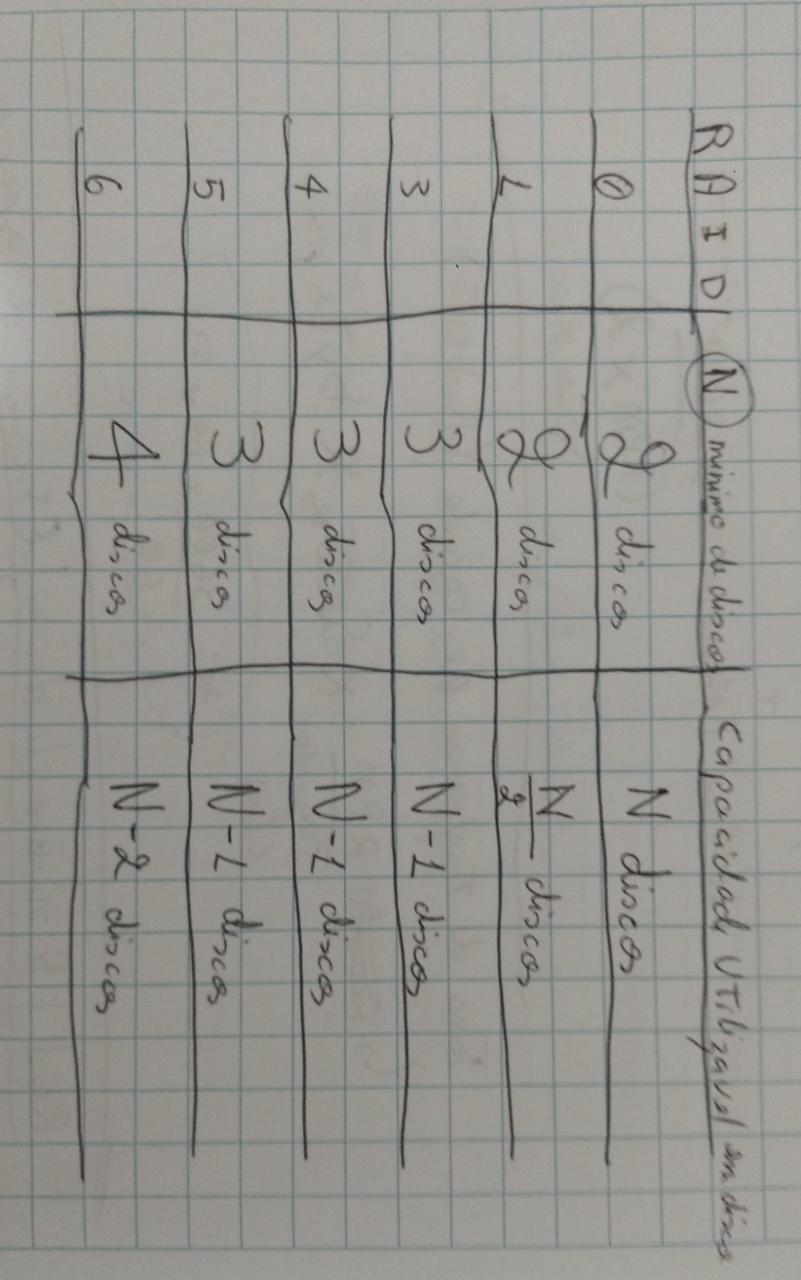 RAID N minimo de discos Capacidade Utilizavel em disco
0 2 discos N discos
1 2 discos N/2 discos
3 3 discos N-1 discos
4 3 discos N-1 discos
5 3 discos N-1 discos
6 4 discos N-2 discos